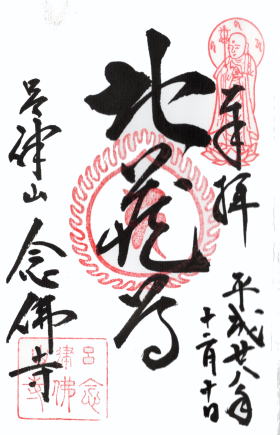 奉拝
平成廿八年
十二月十日
地蔵尊
呂律山 念佛寺
呂律
念佛